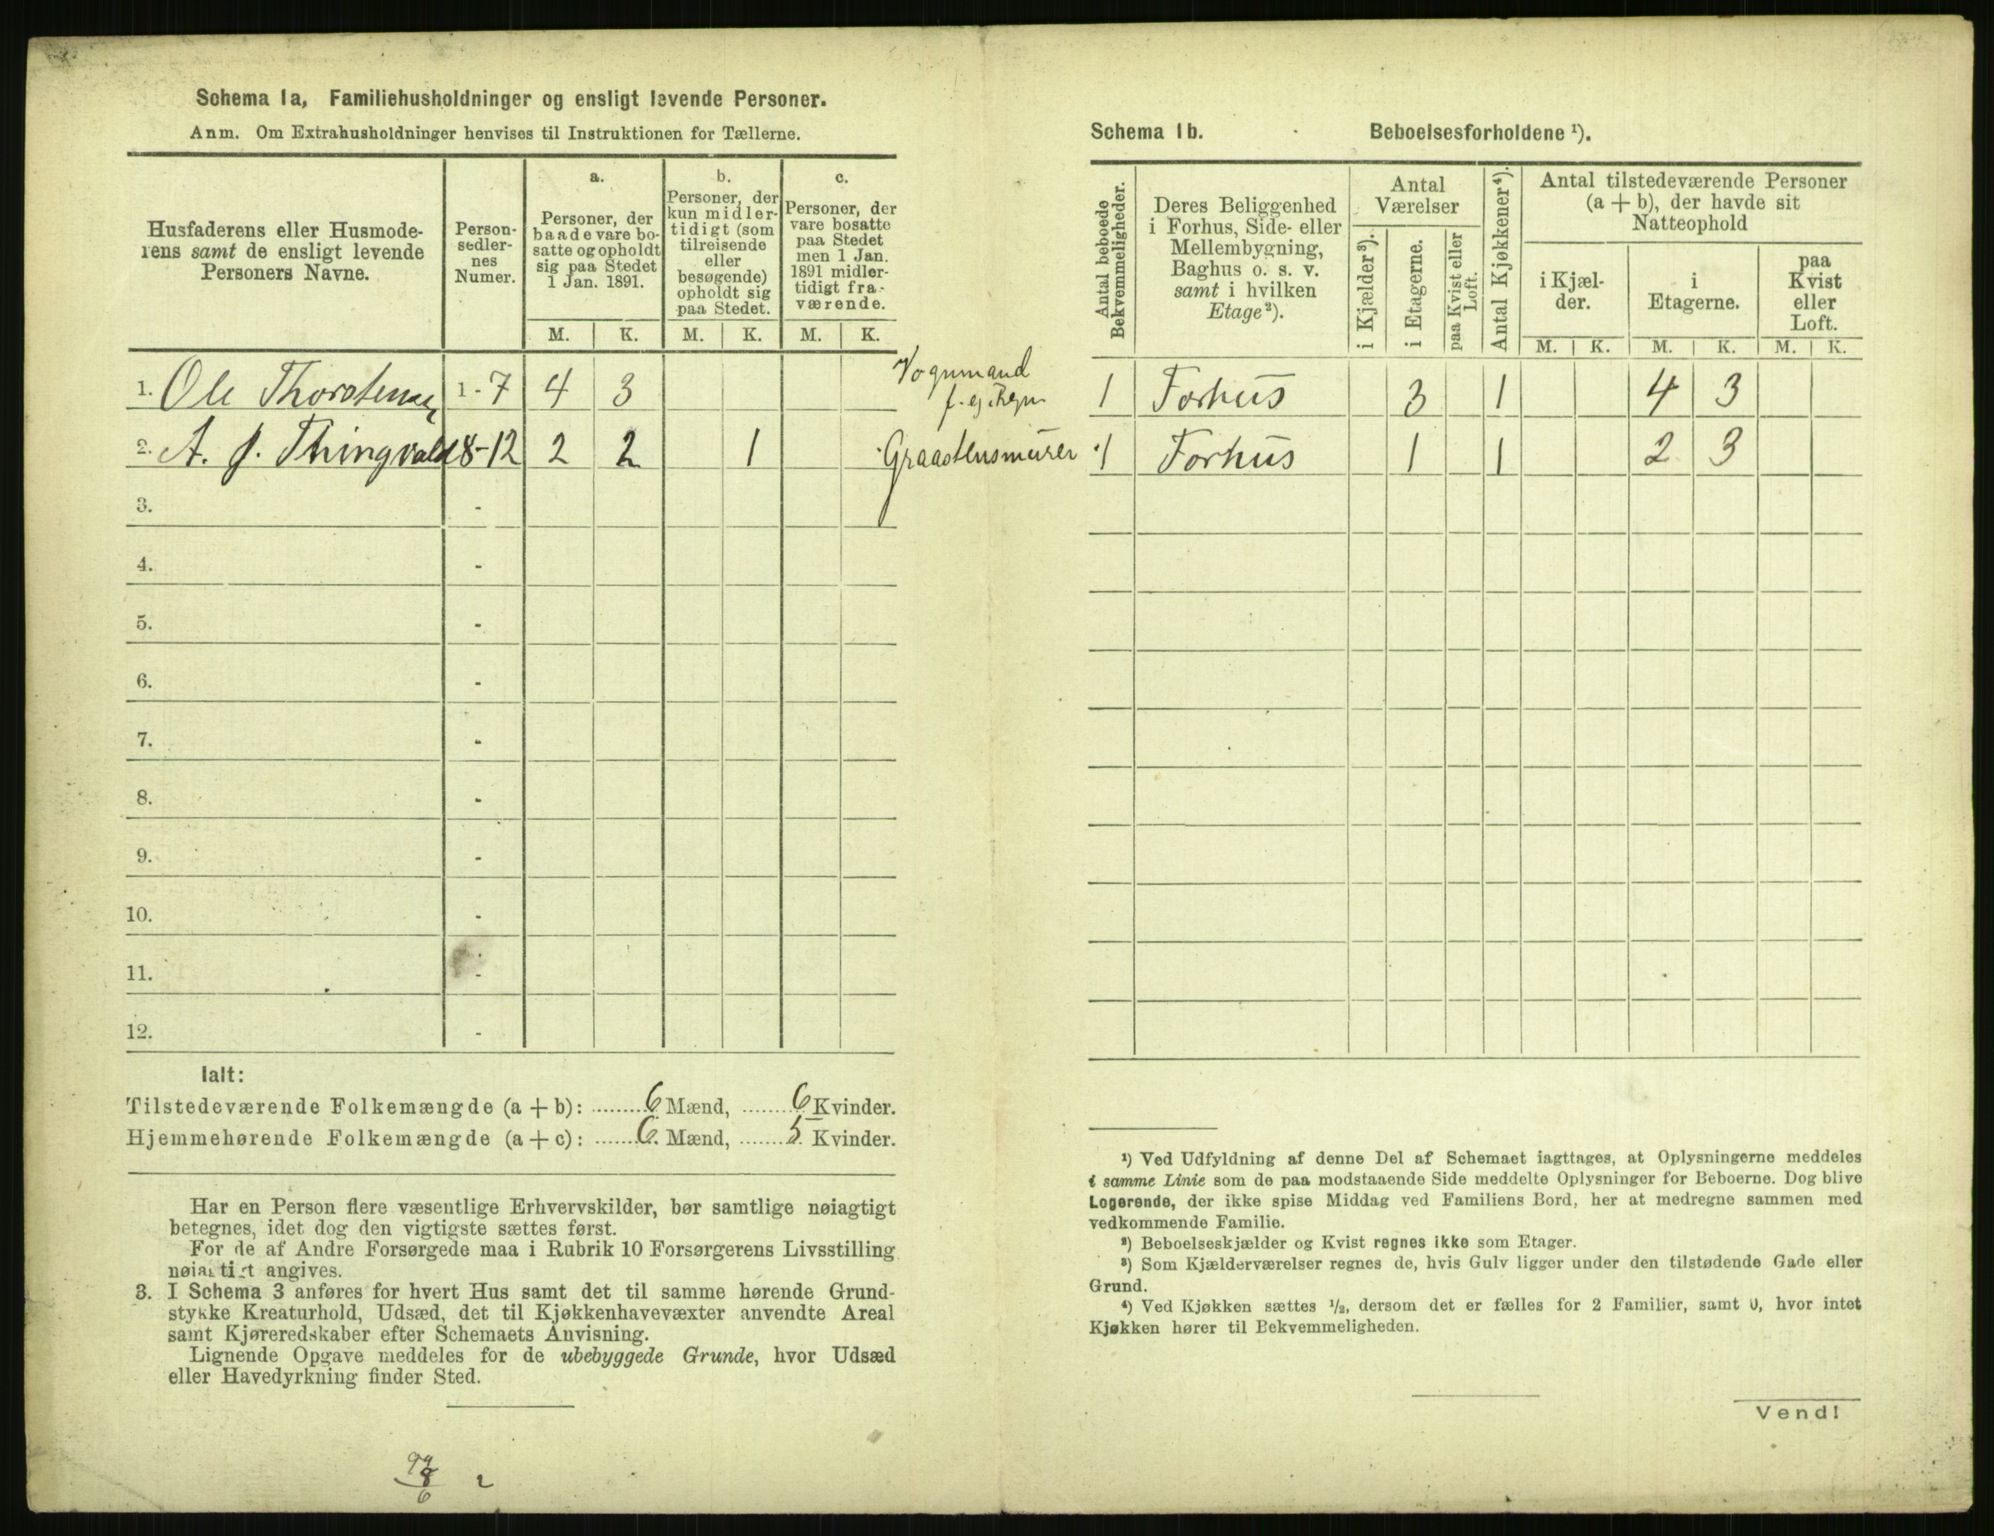 Schema 1a, Familiehusholdninger og ensligt levende Personer.
Anm. Om Extrahusholdninger henvises til Instruktionen for Tællerne.
Husfaderens eller Husmoderens samt de ensligt levende Personers Navne.
Personsedlernes Numer.
a.
Personer, der baade vare bosatte og opholdt sig paa Stedet 1 Jan. 1891.
b.
Personer, der kun midlertidigt (som tilreisende eller besøgende) opholdt sig paa Stedet.
c.
Personer, der vare bosatte paa Stedet men 1 Jan. 1891 midlertidigt fraværende.
M. K. M. K. M. K.
1. Ole Thorstensen 1-7 4 3 Vognmand
f. eg. Regn
2. A. J. Thingvald 8-12 2 2 1 Graastensmurer
3. -
4. -
5. -
6. -
7. -
8. -
9. -
10. -
11. -
12. -
Ialt:
Tilstedeværende Folkemængde (a + b): 6 Mænd, 6 Kvinder.
Hjemmehørende Folkemængde (a + c): 6. Mænd, 5. Kvinder.
Har en Person flere væsentlige Erhvervskilder, bør samtlige nøiagtigt
betegnes, idet dog den vigtigste sættes først.
For de af Andre Forsørgede maa i Rubrik 10 Forsørgerens Livsstilling
nøiagtigt angives.
3. I Schema 3 anføres for hvert Hus samt det til samme hørende Grund-
stykke Kreaturhold, Udsæd, det til Kjøkkenhavevæxter anvendte Areal
samt Kjøreredskaber efter Schemaets Anvisning.
Lignende Opgave meddeles for de ubebyggede Grunde, hvor Udsæd
eller Havedyrkning finder Sted.
Schema 1b. Beboelsesforholdene ¹).
Antal beboede Bekvemmeligheder.
Deres Beliggenhed i Forhus, Side- eller Mellembygning, Baghus o. s. v. samt i hvilken Etage²).
Antal Værelser
i Kjælder³).
i Etagerne.
paa Kvist eller Loft.
Antal Kjøkkener⁴).
Antal tilstedeværende Personer (a + b), der havde sit Natteophold
i Kjælder.
i Etagerne.
paa Kvist eller Loft.
M. K. M. K. M. K.
1 Forhus 3 1 4 3
1 Forhus 1 1 2 3
¹) Ved Udfyldning af denne Del af Schemaet iagttages, at Oplysningerne meddeles
i samme Linie som de paa modstaaende Side meddelte Oplysninger for Beboerne. Dog blive
Logerende, der ikke spise Middag ved Familiens Bord, her at medregne sammen med
vedkommende Familie.
²) Beboelseskjælder og Kvist regnes ikke som Etager.
³) Som Kjælderværelser regnes de, hvis Gulv ligger under den tilstødende Gade eller
Grund.
⁴) Ved Kjøkken sættes ½, dersom det er fælles for 2 Familier, samt 0, hvor intet
Kjøkken hører til Bekvemmeligheden.
Vend!